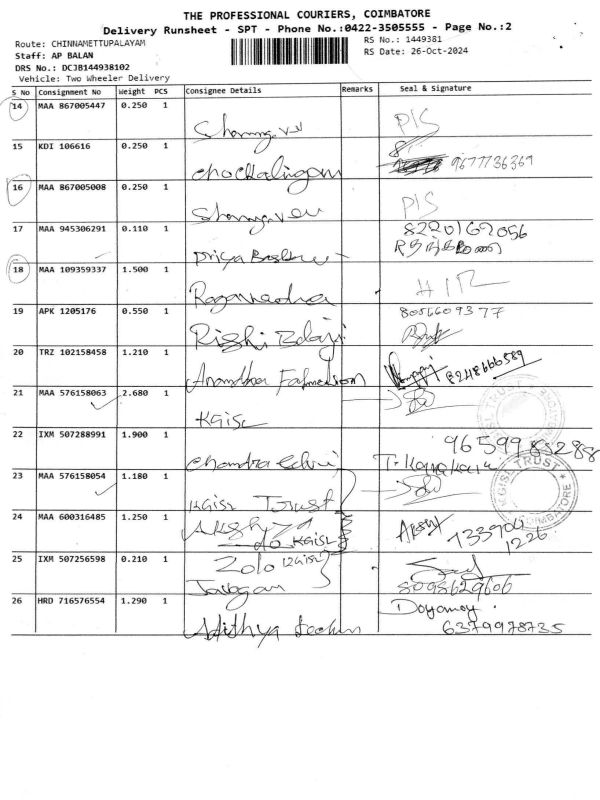 THE PROFESSIONAL COURIERS, COIMBATORE
Delivery Runsheet - SPT - Phone No.:0422-3505555 - Page No.:2
Route: CHINNAMETTUPALAYAM
RS No.: 1449381
Staff: AP BALAN
RS Date: 26-Oct-2024
DRS No.: DCJB144938102
Vehicle: Two Wheeler Delivery
S No Consignment No Weight PCS Consignee Details Remarks Seal & Signature
14 MAA 867005447 0.250 1 PIS
15 KDI 106616 0.250 1
Chockalingam 9677736369
16 MAA 867005008 0.250 1 PIS
17 MAA 945306291 0.110 1 8220162056
Priya
18 MAA 109359337 1.500 1
19 APK 1205176 0.550 1 8056609377
Rishi Balaji
20 TRZ 102158458 1.210 1
8248666589
21 MAA 576158063 2.680 1
KGISL
22 IXM 507288991 1.900 1 96599 85288
Chandra
23 MAA 576158054 1.180 1
KGISL Trust
KGISL TRUST
COIMBATORE
24 MAA 600316485 1.250 1 733904
Zolo KGISL 1226
25 IXM 507256598 0.210 1
Zolo KGISL
8098629606
26 HRD 716576554 1.290 1
Adithya 6379978735